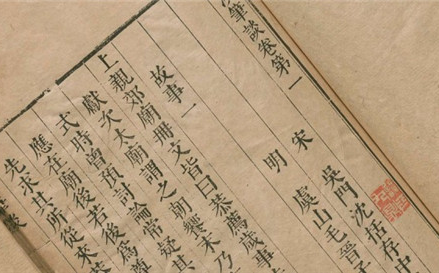 筆談卷第一
宋 吳門沈括存中
明 虞山毛晉
故事一
上親郊廟冊文皆曰恭薦歲事
獻次太廟謂之朝饗末乃
式時曾預討論常疑其
應在廟後若後為尊
先求其所從來